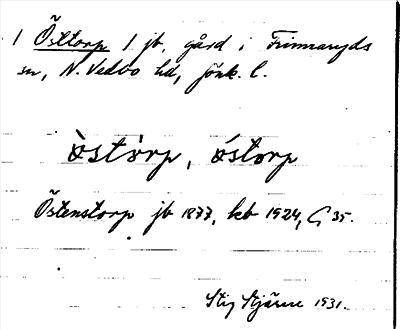 1 Östtorp 1 jb, gård i Finnaryds
sn, N. Vedbo hd, Jönk. l.
òstòrp, óstorp
Östenstorp jb 1877, kb 1924, G 35.
Stig Stjärne 1931.